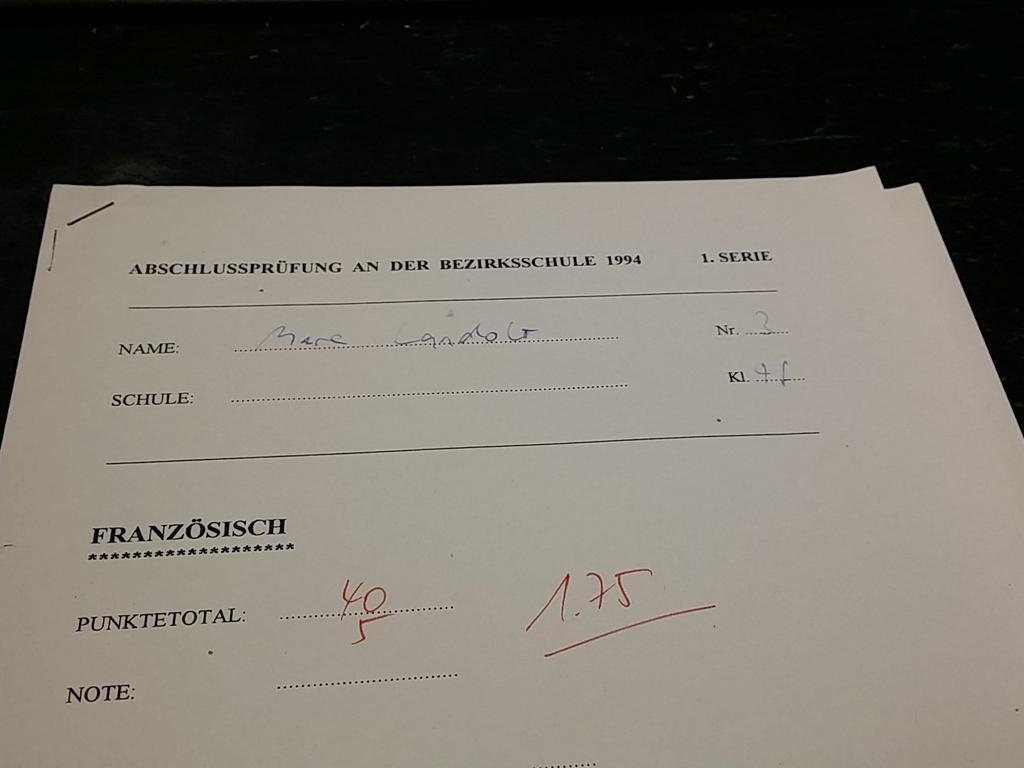 ABSCHLUSSPRÜFUNG AN DER BEZIRKSSCHULE 1994 1. SERIE
NAME: Marc Landolt Nr. 3
SCHULE: Kl. 4f
FRANZÖSISCH
*******************
PUNKTETOTAL: 40 1.75
5
NOTE: